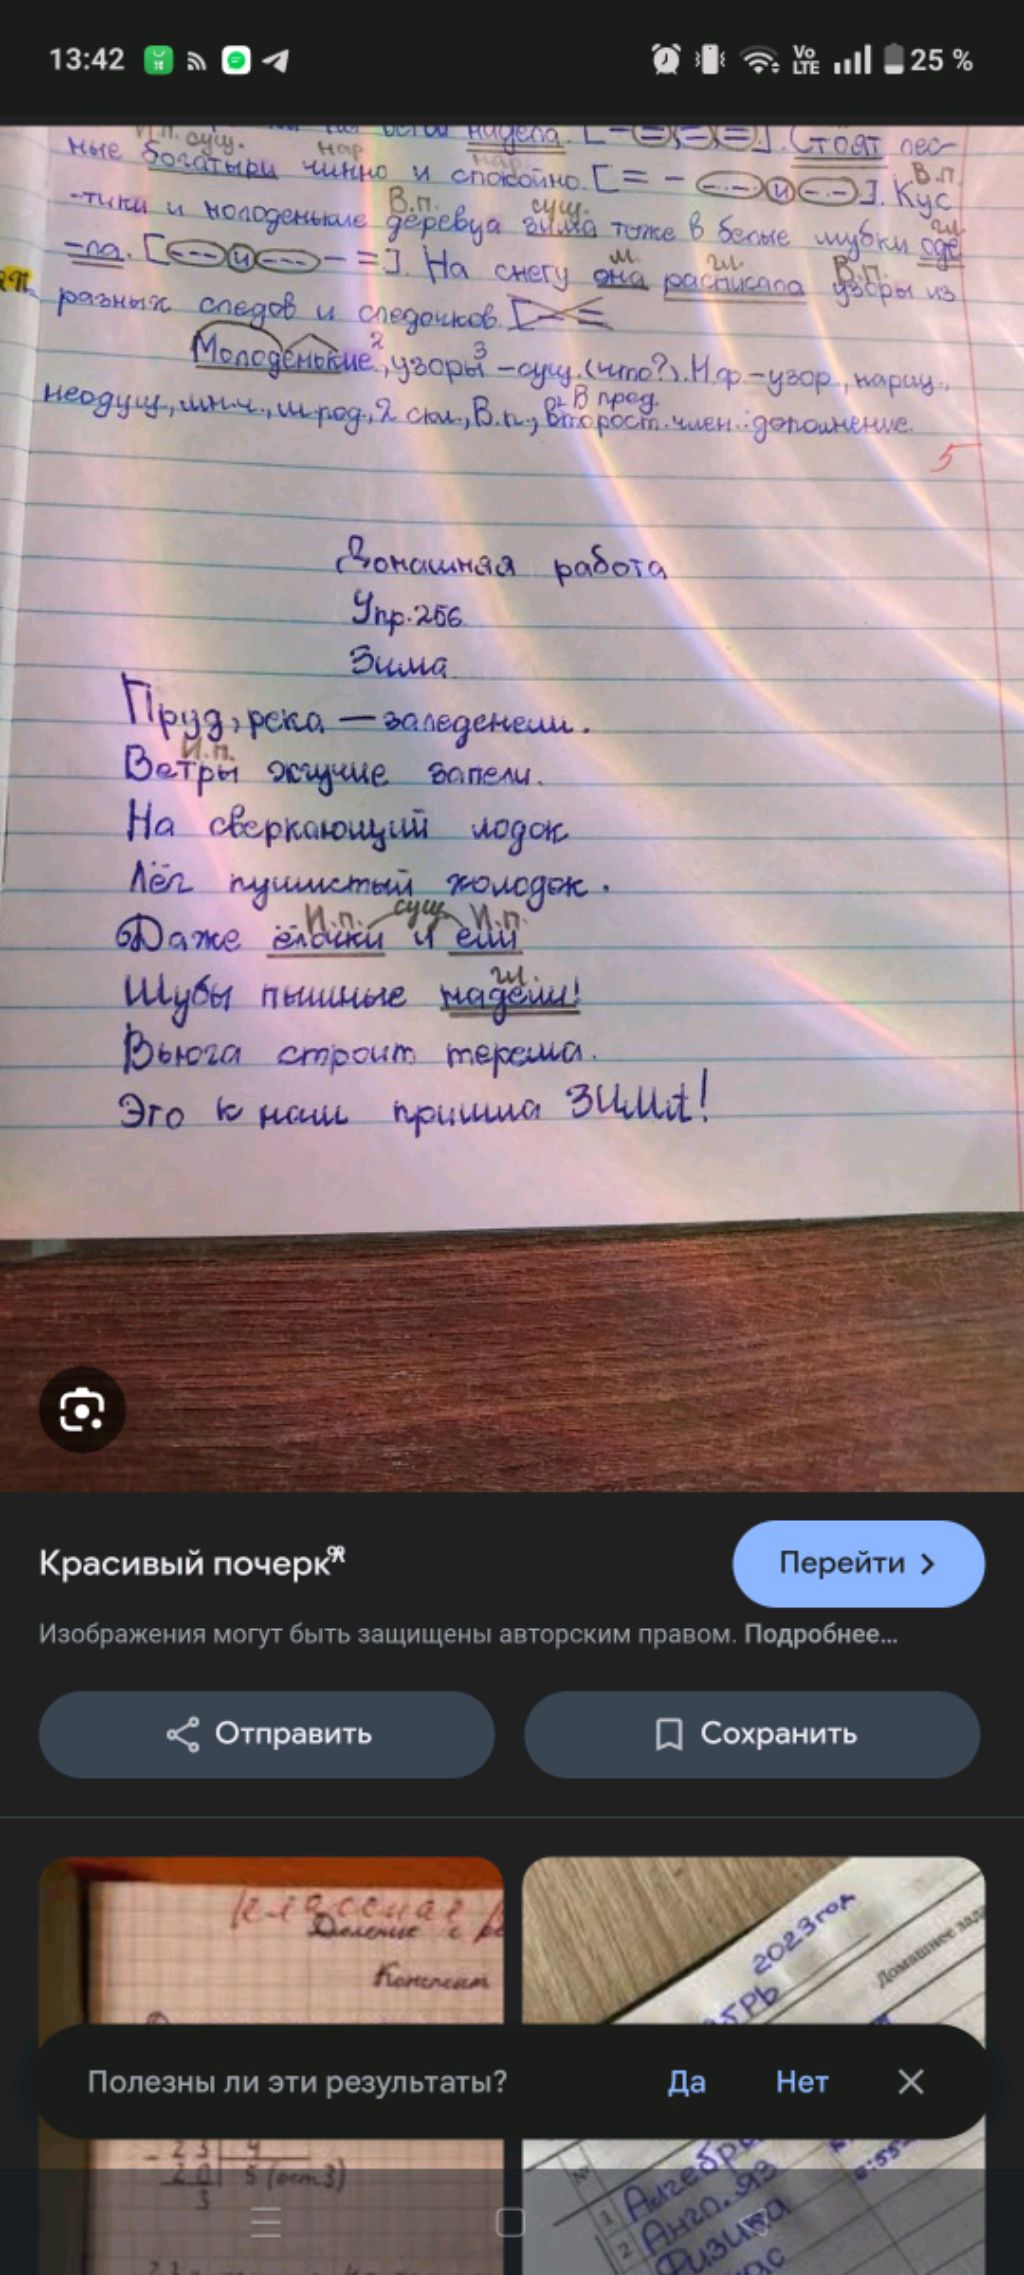 13:42 Vo LTE 25 %
И.п. сущ. нар. надела. [– =, =, =]. Стоят лес-
ные богатыри чинно и спокойно. [= – и]. Кус
В.п. сущ. нар. В.п.
-тики и молоденькие деревца зима тоже в белые шубки оде
гл.
=ла. [и – =]. На снегу она расписала узоры из
м. гл. В.п.
разных следов и следочков.
Молоденькие², узоры³ – сущ. (что?). Н.ф. – узор, нариц.,
неодуш., мн.ч., м.род., 2 скл., В.п., В пред. второст. член. дополнение.
5
Домашняя работа
Упр. 256.
Зима.
Пруд, река — заледенели.
И.п.
Ветры жгучие запели.
На сверкающий лодок
Лёг пушистый холодок.
И.п. сущ. И.п.
Даже ёлочки и ели
гл.
Шубы пышные надели!
Вьюга строит терема.
Это к нам пришла ЗИМА!
Красивый почерк
Перейти
Изображения могут быть защищены авторским правом. Подробнее...
Отправить
Сохранить
классная
Деление с
Конспект
2023 год
Домашнее зад
Полезны ли эти результаты? Да Нет
23 4
20 5 (ост 3)
3
№
1 Алгебра
2 Англ. яз
Физика